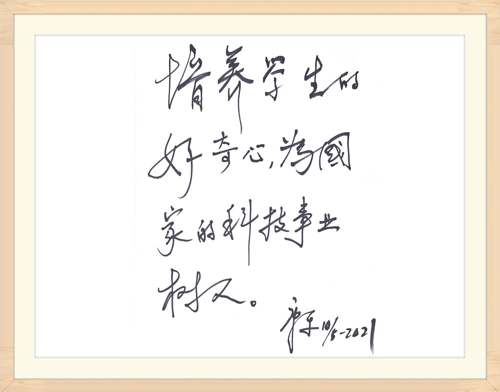 培养学生的
好奇心,為國
家的科技事业
树人。
10/5-2021